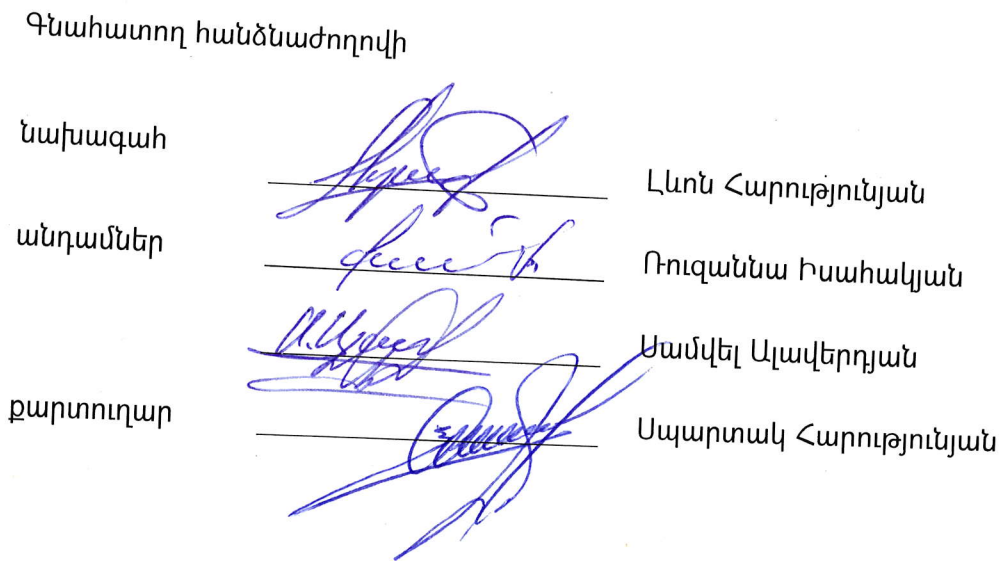 Գնահատող հանձնաժողովի
նախագահ Լևոն Հարությունյան
անդամներ Ռուզաննա Իսահակյան
Սամվել Ալավերդյան
քարտուղար Սպարտակ Հարությունյան